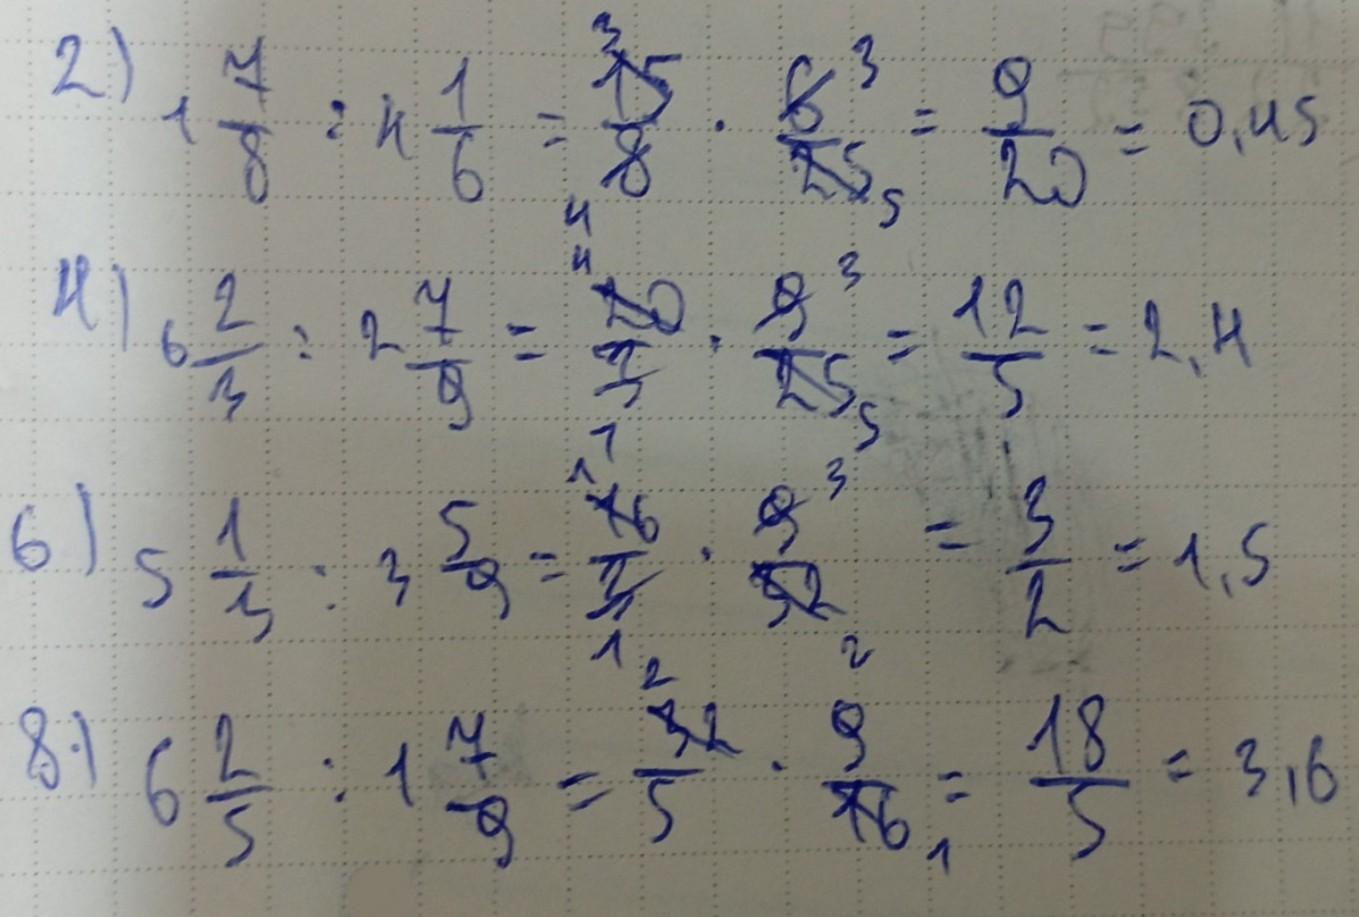 2) 1 7/8 : 4 1/6 = 15/8 · 6/25 = 9/20 = 0,45
4) 6 2/3 : 2 7/9 = 20/3 · 9/25 = 12/5 = 2,4
6) 5 1/3 : 3 5/9 = 16/3 · 9/32 = 3/2 = 1,5
8) 6 2/5 : 1 7/9 = 32/5 · 9/16 = 18/5 = 3,6